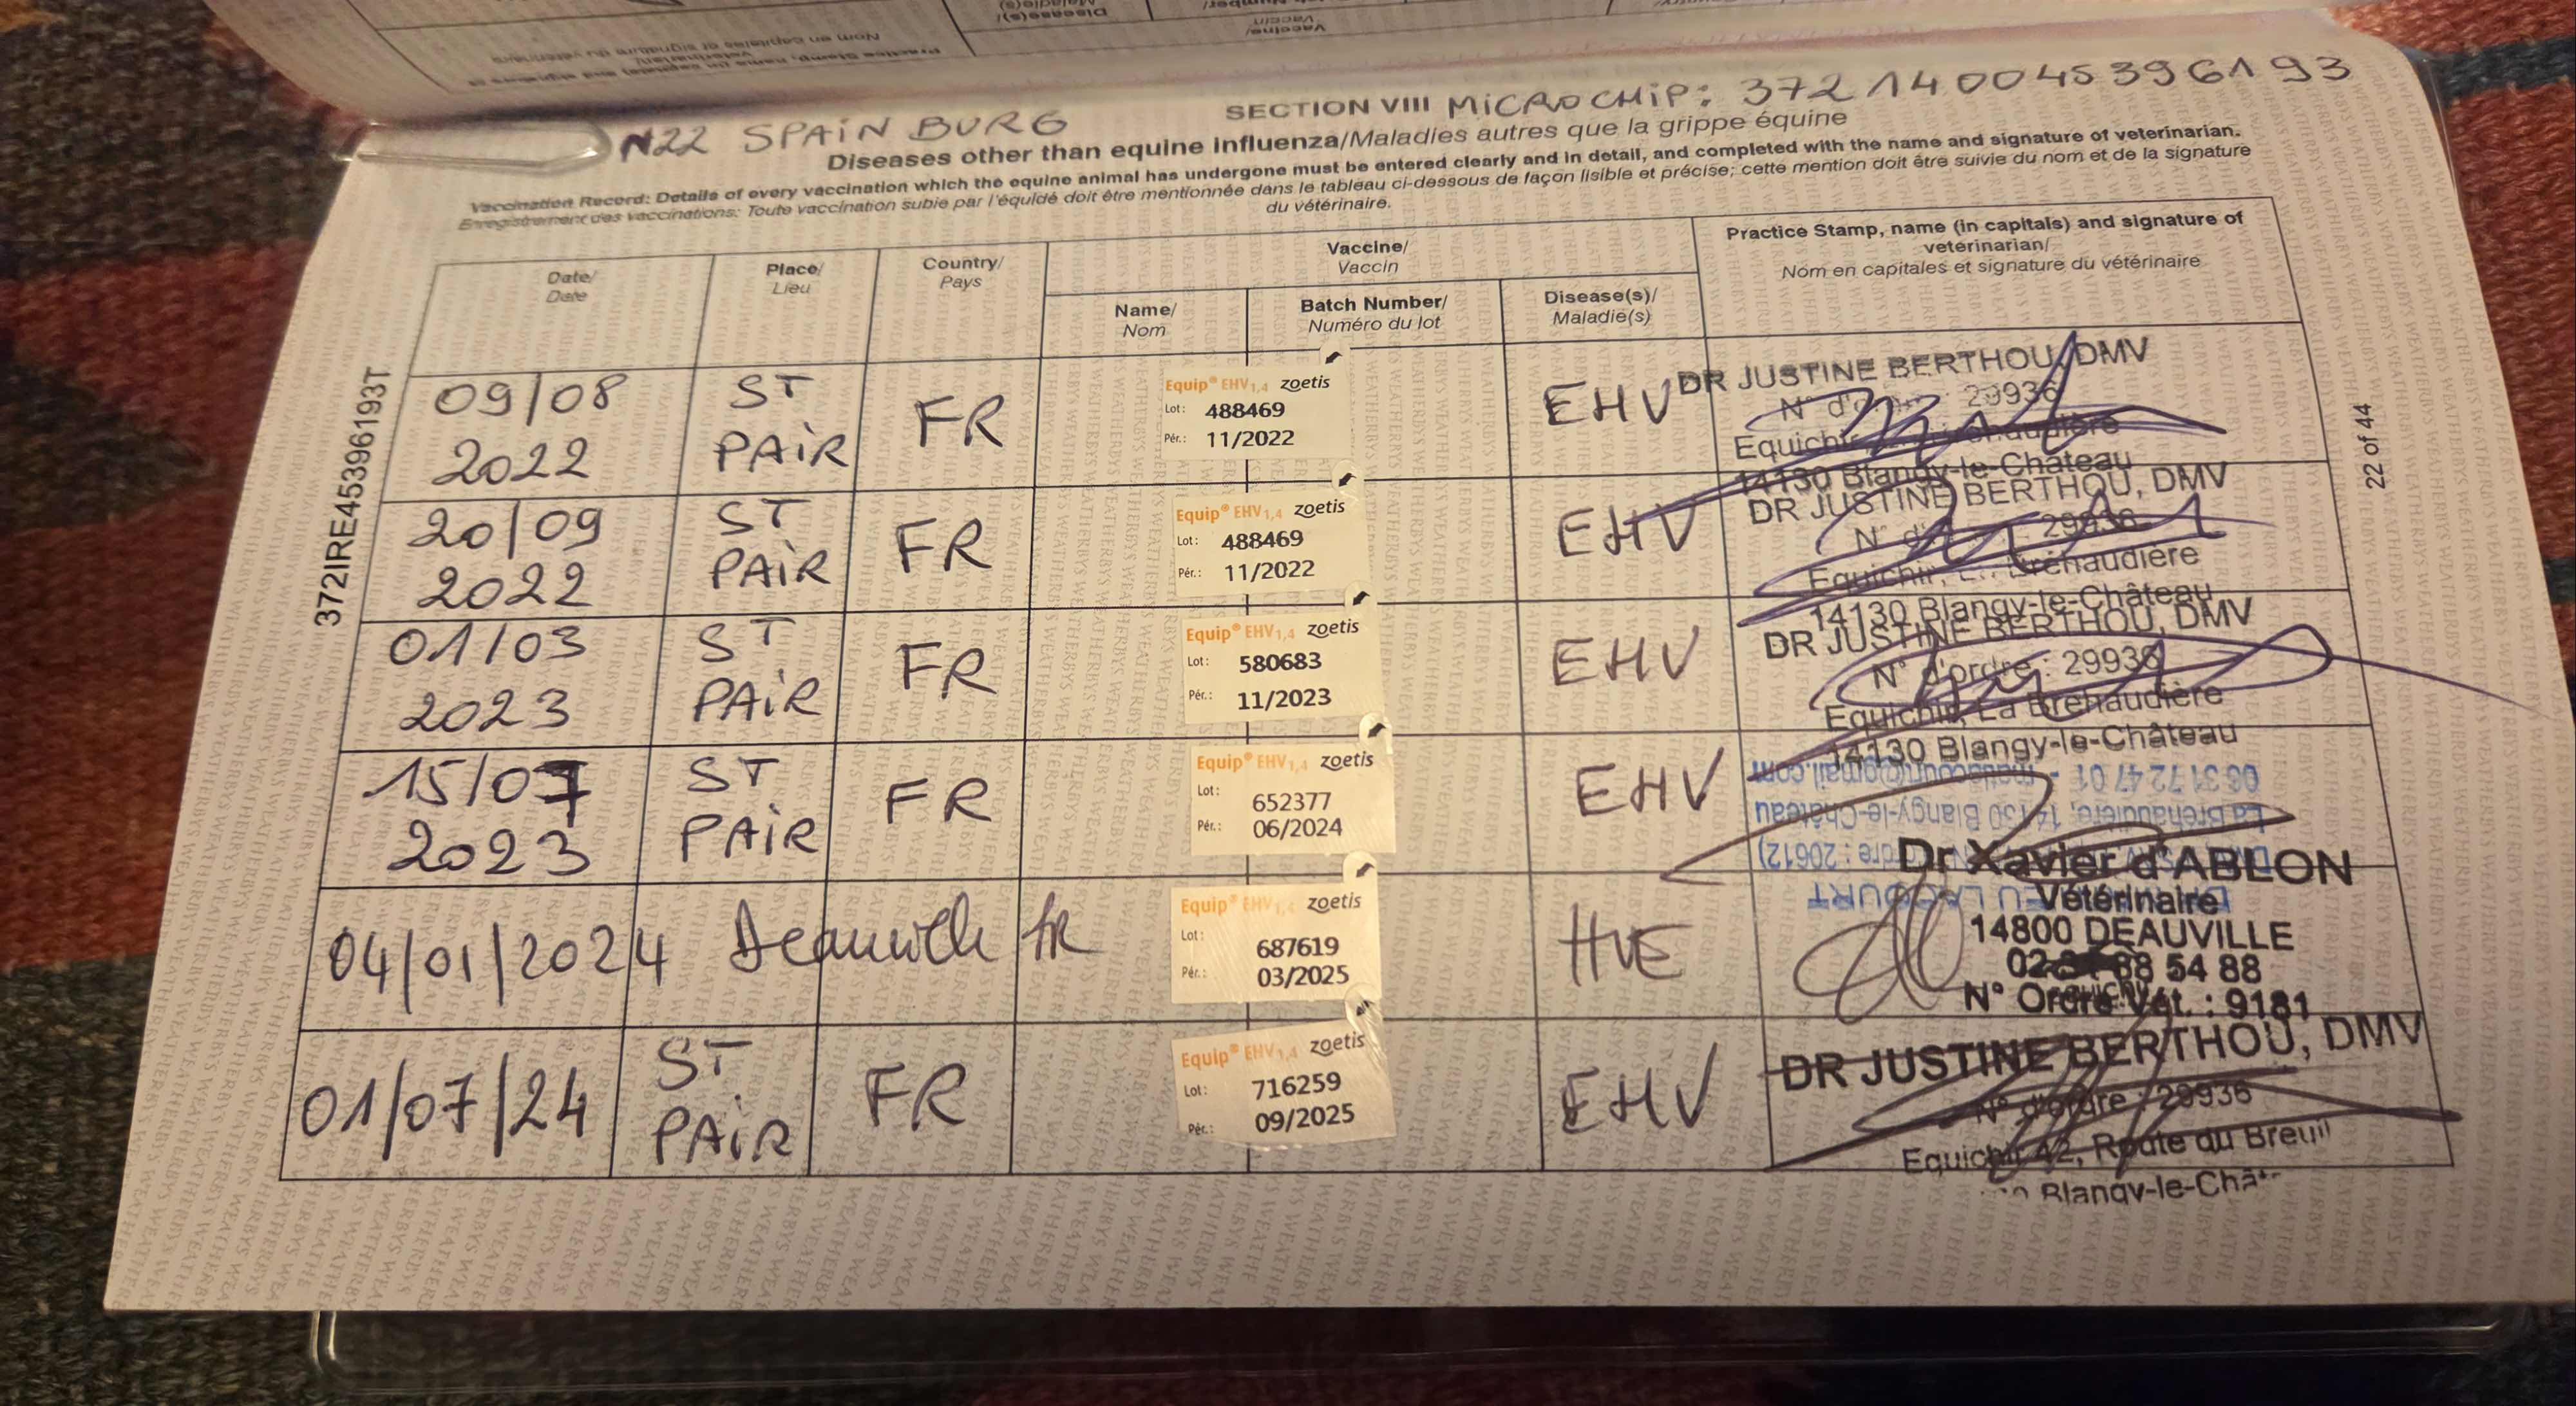 N22 SPAIN BURG
SECTION VIII MICROCHIP: 372140045396193
Diseases other than equine influenza/Maladies autres que la grippe équine
Vaccination Record: Details of every vaccination which the equine animal has undergone must be entered clearly and in detail, and completed with the name and signature of veterinarian.
Enregistrement des vaccinations: Toute vaccination subie par l'équidé doit être mentionnée dans le tableau ci-dessous de façon lisible et précise; cette mention doit être suivie du nom et de la signature
du vétérinaire.
Date/
Date
Place/
Lieu
Country/
Pays
Vaccine/
Vaccin
Name/
Nom
Batch Number/
Numéro du lot
Disease(s)/
Maladie(s)
Practice Stamp, name (in capitals) and signature of
veterinarian/
Nom en capitales et signature du vétérinaire
372IRE45396193T
22 of 44
09/08
2022
ST
PAIR
FR
Equip® EHV1,4 zoetis
Lot: 488469
Pér.: 11/2022
EHV
DR JUSTINE BERTHOU, DMV
29936
14130 Blangy-le-Château
20/09
2022
ST
PAIR
FR
Equip® EHV1,4 zoetis
Lot: 488469
Pér.: 11/2022
EHV
DR JUSTINE BERTHOU, DMV
29936
Equichir, La Bréhaudière
14130 Blangy-le-Château
01/03
2023
ST
PAIR
FR
Equip® EHV1,4 zoetis
Lot: 580683
Pér.: 11/2023
EHV
DR JUSTINE BERTHOU, DMV
N° d'ordre : 29936
Equichir, La Bréhaudière
14130 Blangy-le-Château
15/07
2023
ST
PAIR
FR
Equip® EHV1,4 zoetis
Lot: 652377
Pér.: 06/2024
EHV
La Bréhaudière, 14130 Blangy-le-Château
06 31 72 47 01
04/01/2024
Deauville
FR
Equip® EHV1,4 zoetis
Lot: 687619
Pér.: 03/2025
HVE
Dr Xavier d'ABLON
Vétérinaire
14800 DEAUVILLE
88 54 88
N° Ordre Vét. : 9181
01/07/24
ST
PAIR
FR
Equip® EHV1,4 zoetis
Lot: 716259
Pér.: 09/2025
EHV
DR JUSTINE BERTHOU, DMV
N° d'ordre : 29936
Equichir 42, Route du Breuil
Blangy-le-Châ